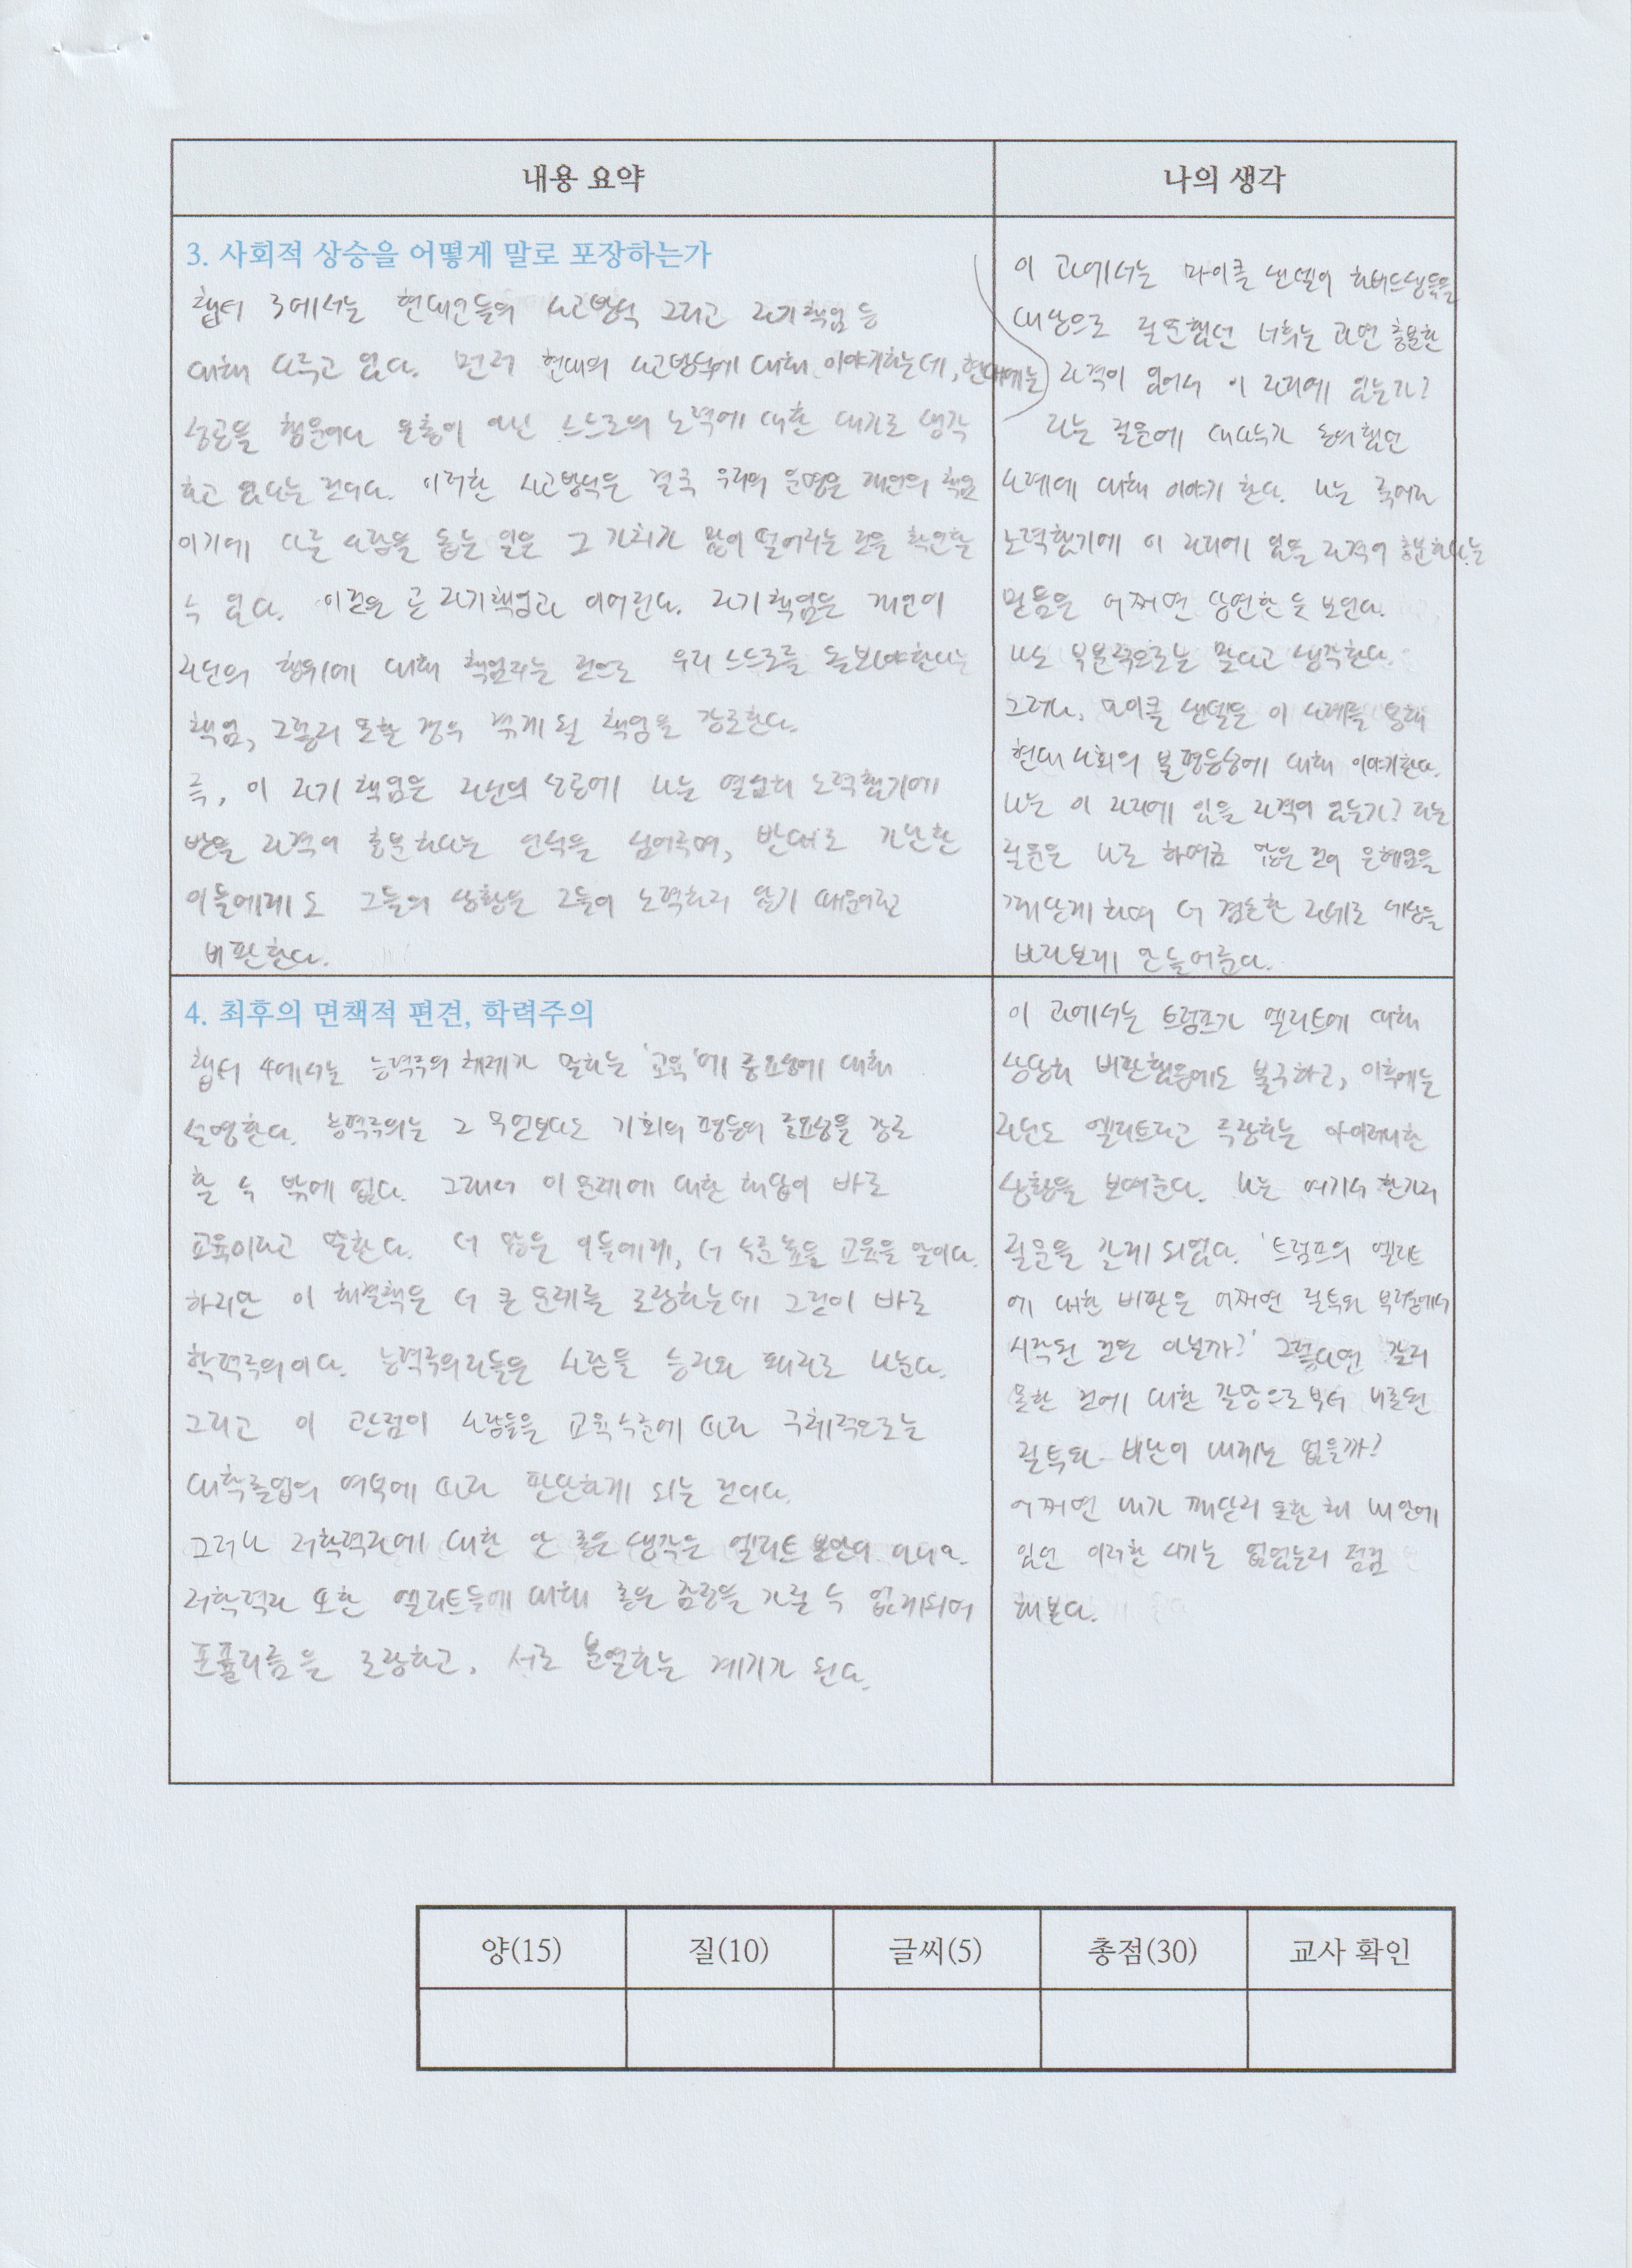 내용 요약
나의 생각
3. 사회적 상승을 어떻게 말로 포장하는가
챕터 3에서는 현대인들의 사고방식 그리고 자기책임 등
대해 다루고 있다. 먼저 현대의 사고방식에 대해 이야기하는데, 현대에는
성공을 행운이나 은총이 아닌 스스로의 노력에 대한 대가로 생각
하고 있다는 것이다. 이러한 사고방식은 결국 우리의 운명은 개인의 책임
이기에 다른 사람을 돕는 일은 그 가치가 많이 떨어지는 것을 확인할
수 있다. 이것은 곧 자기책임과 이어진다. 자기책임은 개인이
자신의 행위에 대해 책임지는 것으로 우리 스스로를 돌보아야한다는
책임, 그렇지 못할 경우 겪게 될 책임을 강조한다.
즉, 이 자기 책임은 자신의 성공에 나는 열심히 노력했기에
받을 자격이 충분하다는 인식을 심어주며, 반대로 가난한
이들에게도 그들의 상황은 그들이 노력하지 않기 때문이라고
비판한다.
이 과에서는 마이클 샌델이 하버드생들을
대상으로 질문했던 너희는 과연 충분한
자격이 있어서 이 자리에 있는가?
라는 질문에 대다수가 동의했던
사례에 대해 이야기 한다. 나는 죽어라
노력했기에 이 자리에 있을 자격이 충분하다는
믿음은 어쩌면 당연한 듯 보인다.
나도 부분적으로는 맞다고 생각한다.
그러나, 마이클 샌델은 이 사례를 통해
현대 사회의 불평등성에 대해 이야기한다.
나는 이 자리에 있을 자격이 있는가? 라는
질문은 나로 하여금 많은 것이 은혜임을
깨닫게 하며 더 겸손한 자세로 세상을
바라보게 만들어준다.
4. 최후의 면책적 편견, 학력주의
챕터 4에서는 능력주의 체제가 말하는 '교육'에 중요성에 대해
설명한다. 능력주의는 그 무엇보다도 기회의 평등의 중요성을 강조
할 수 밖에 없다. 그래서 이 문제에 대한 해답이 바로
교육이라고 말한다. 더 많은 이들에게, 더 수준 높은 교육을 말이다.
하지만 이 해결책은 더 큰 문제를 조장하는데 그것이 바로
학력주의이다. 능력주의자들은 사람을 승자와 패자로 나눈다.
그리고 이 관점이 사람들을 교육수준에 따라 구체적으로는
대학졸업의 여부에 따라 판단하게 되는 것이다.
그러나 저학력자에 대한 안 좋은 생각은 엘리트 뿐만이 아니다.
저학력자 또한 엘리트들에 대해 좋은 감정을 가질 수 없게되며
포퓰리즘을 조장하고, 서로 분열하는 계기가 된다.
이 과에서는 트럼프가 엘리트에 대해
상당히 비판했음에도 불구하고, 이후에는
자신도 엘리트라고 주장하는 아이러니한
상황을 보여준다. 나는 여기서 한가지
질문을 갖게 되었다. '트럼프의 엘리트
에 대한 비판은 어쩌면 질투와 부러움에서
시작된 것은 아닐까?' 그렇다면 갖지
못한 것에 대한 갈망으로부터 비롯된
질투와 비난이 내게는 없을까?
어쩌면 내가 깨닫지 못한 채 내 안에
있던 이러한 시기는 없었는지 점검
해본다.
양(15)
질(10)
글씨(5)
총점(30)
교사 확인